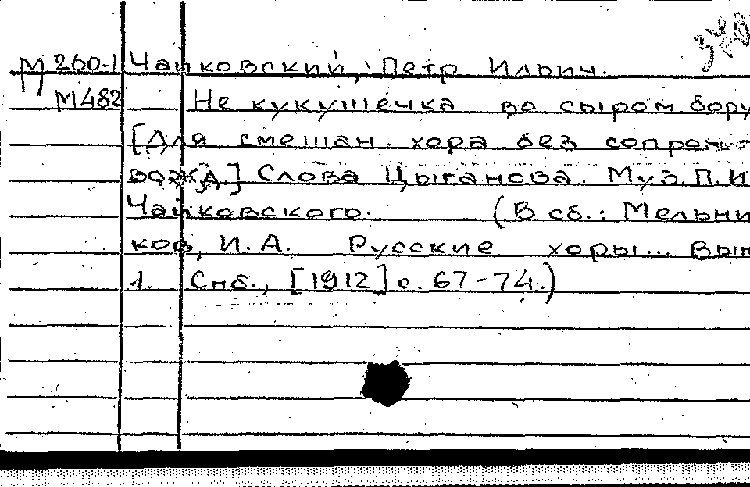 М 260-1 Чайковский, Петр Ильич.
М482 Не кукушечка во сыром бору
[Для смешан. хора без сопрово-
вожд.] Слова Цыганова. Муз. П.И.
Чайковского. (В сб.: Мельни
ков, И.А. Русские хоры... Вып
1. Спб., [1912] с. 67-74.)